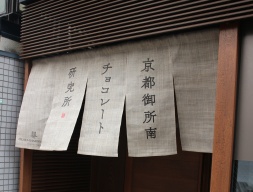 京都御所南
チョコレート
研究所